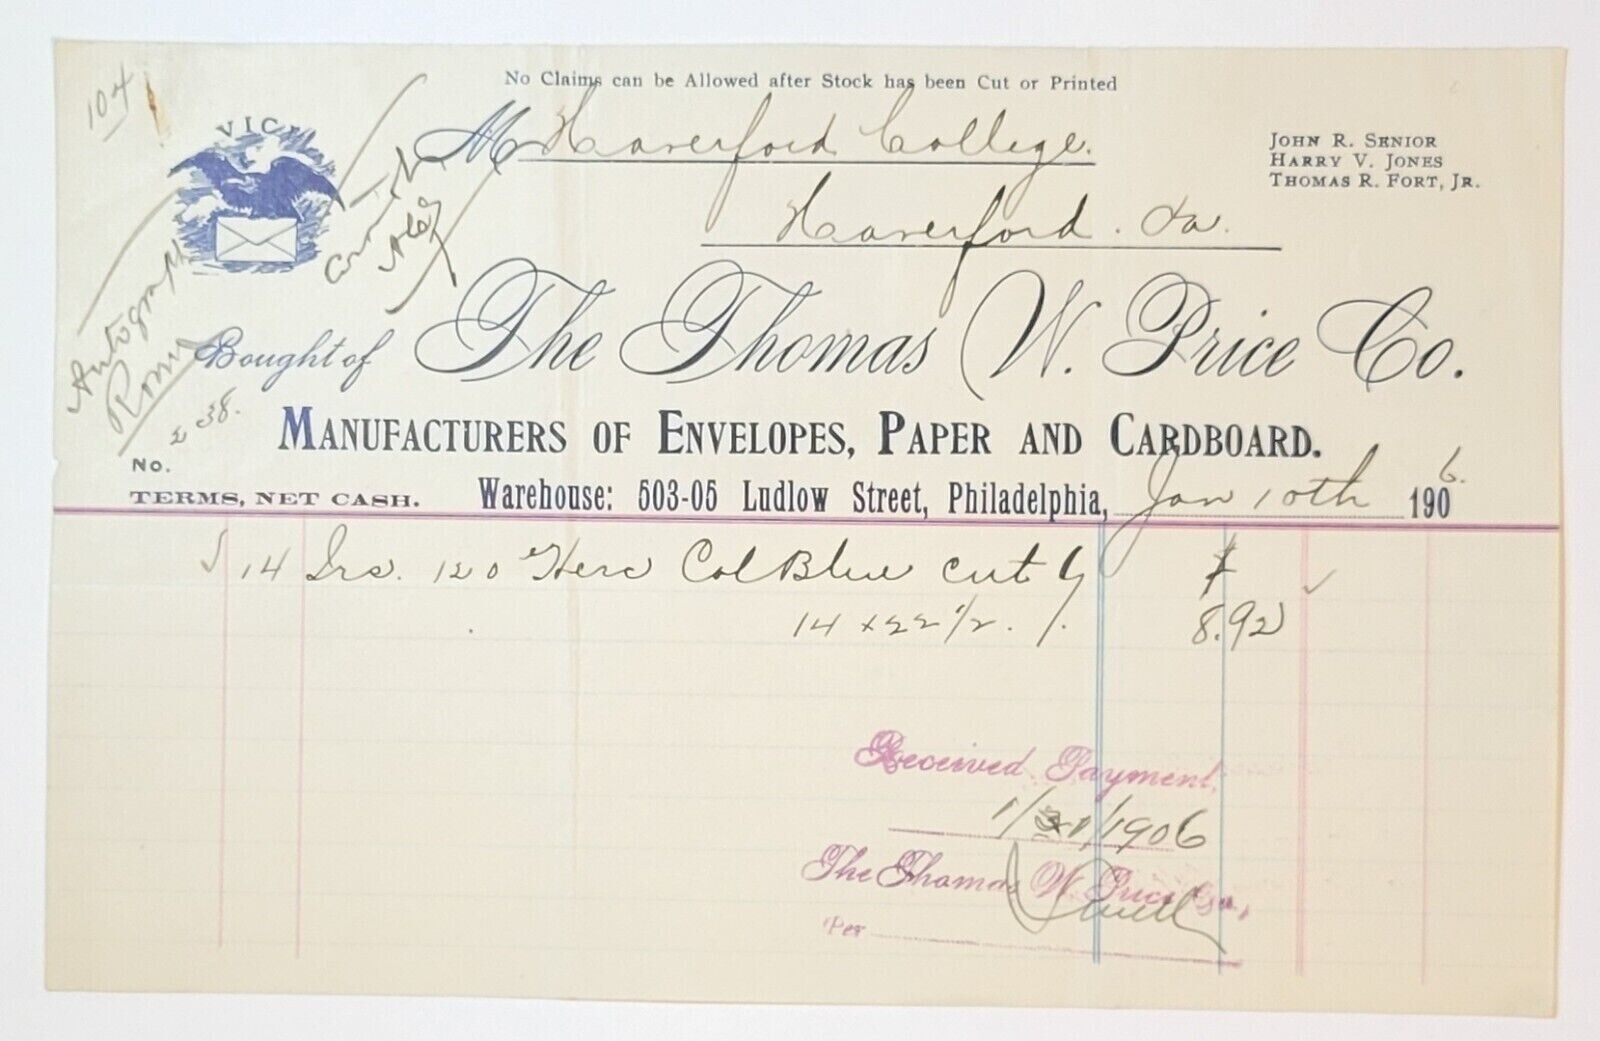 No Claims can be Allowed after Stock has been Cut or Printed
104
VICI
M Haverford College.
Haverford. Pa.
JOHN R. SENIOR
HARRY V. JONES
THOMAS R. FORT, JR.
Autograph
Room
Bought of The Thomas W. Price Co.
238.
MANUFACTURERS OF ENVELOPES, PAPER AND CARDBOARD.
No.
TERMS, NET CASH. Warehouse: 503-05 Ludlow Street, Philadelphia, Jan 10th 1906.
14 120 Col Blue cut
14 x 22 1/2. 8.92
Received Payment,
1/31/1906
The Thomas W. Price Co.,
Per